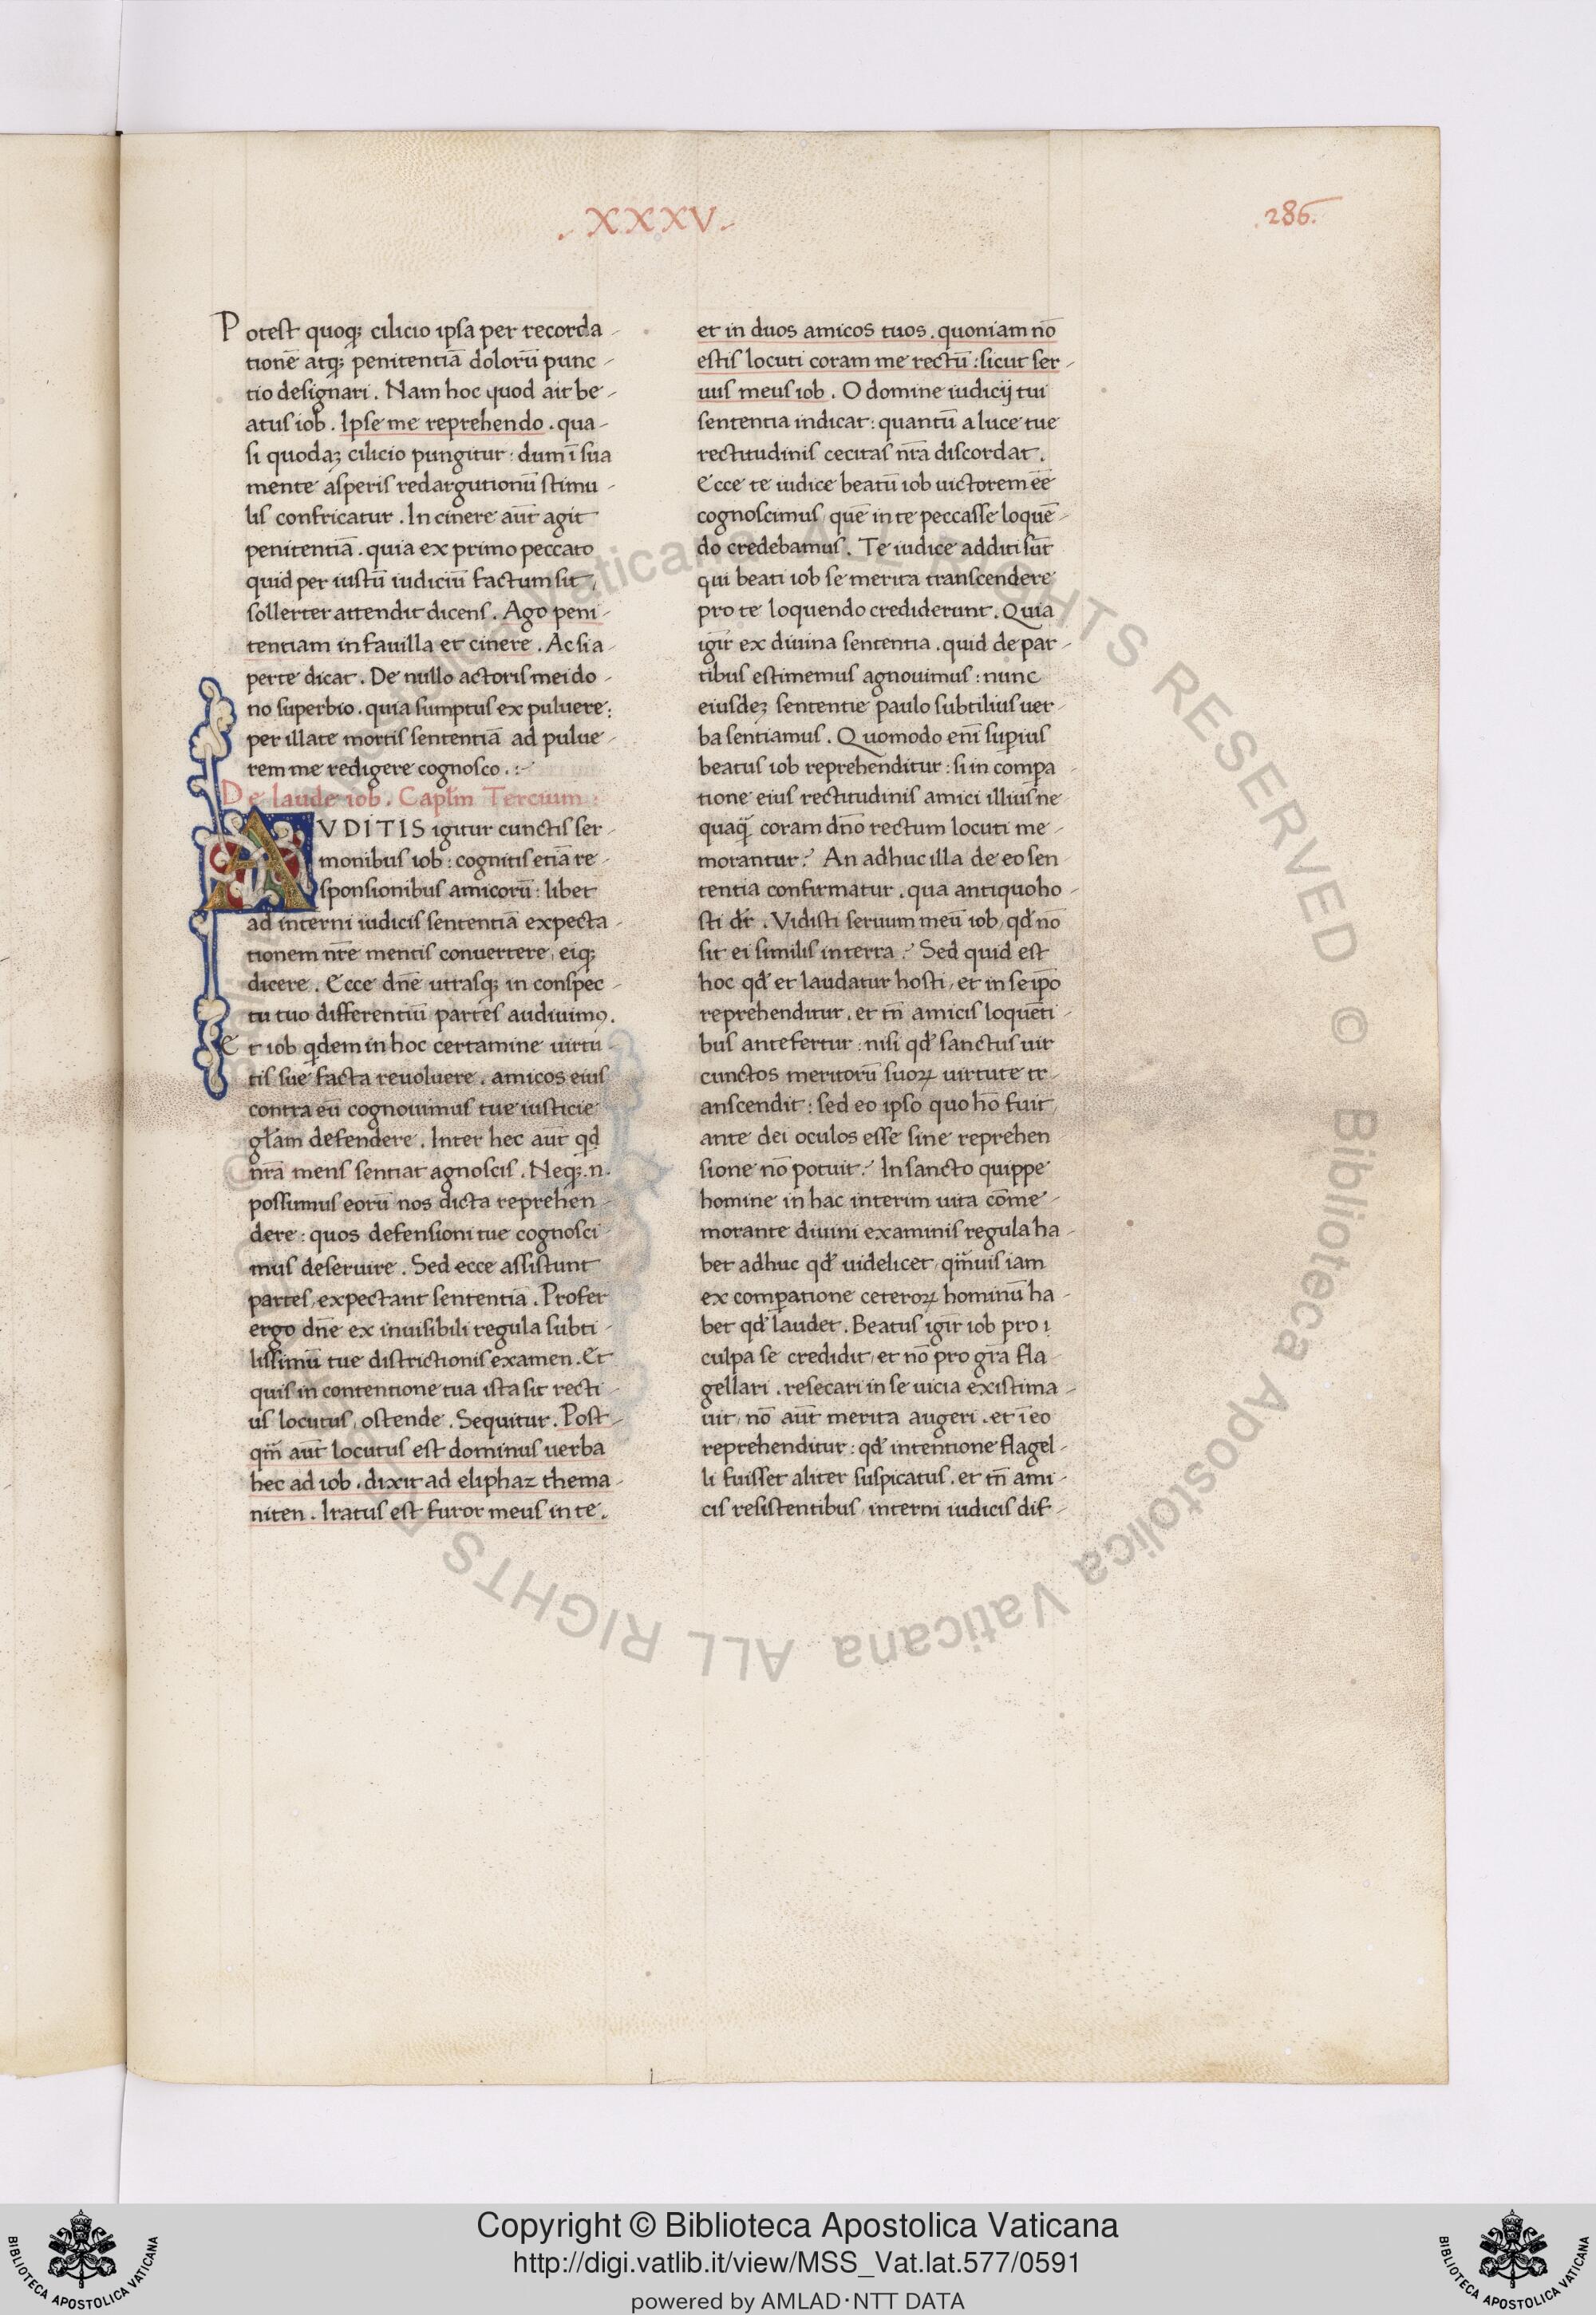 . XXXV.
.286.
Potest quoq; cilicio ipsa per recorda-
tionē atq; penitentiā dolorū punc-
tio designari. Nam hoc quod ait be-
atus iob. Ipse me reprehendo. qua-
si quodaʒ cilicio pungitur: dum ī sua
mente asperis redargutionū stimu-
lis confricatur. In cinere aūt agit
penitentiā. quia ex primo peccato
quid per iustū iudiciū factum sit,
sollerter attendit dicens. Ago peni-
tentiam in fauilla et cinere. Ac si a-
perte dicat. De nullo actoris mei do-
no superbio. quia sumptus ex puluere:
per illate mortis sententiā ad pulue-
rem me redigere cognosco.:-
De laude iob. Capl̄m Tercium:
AVDITIS igitur cunctis ser-
monibus iob: cognitis etiā re-
sponsionibus amicorū: libet
ad interni iudicis sententiā expecta-
tionem nr̄e mentis conuertere, eiq;
dicere. Ecce dn̄e utrasq; in conspec-
tu tuo differentiū partes audiuimꝰ.
Et iob qdem in hoc certamine uirtu-
tis sue facta reuoluere. amicos eius
contra eū cognouimus tue iusticie
gl̄am defendere. Inter hec aūt qd
nr̄a mens sentiat agnoscis. Neq; .n.
possumus eorū nos dicta reprehen-
dere: quos defensioni tue cognosci-
mus deseruire. Sed ecce assistunt
partes, expectant sententiā. Profer
ergo dn̄e ex inuisibili regula subti-
lissimū tue districtionis examen. Et
quis in contentione tua ista sit recti-
us locutus, ostende. Sequitur. Post-
qm̄ aūt locutus est dominus uerba
hec ad iob. dixit ad eliphaz thema-
niten. Iratus est furor meus in te.
et in duos amicos tuos. quoniam nō
estis locuti coram me rectū: sicut ser-
uus meus iob. O domine iudicij tui
sententia indicat: quantū a luce tue
rectitudinis cecitas nr̄a discordat.
Ecce te iudice beatū iob uictorem ēē
cognoscimus, quē in te peccasse loquē-
do credebamus. Te iudice additi sūt
qui beati iob se merita transcendere
pro te loquendo crediderunt. Quia
igr̄ ex diuina sententia. quid de par-
tibus estimemus agnouimus: nunc
eiusdeʒ sententie paulo subtilius uer-
ba sentiamus. Quomodo enī suꝑius
beatus iob reprehenditur: si in compa
tione eius rectitudinis amici illius ne
quaq̄ coram dn̄o rectum locuti me-
morantur? An adhuc illa de eo sen-
tentia confirmatur. qua antiquo ho-
sti dr̄. Vidisti seruum meū iob, qd̄ nō
sit ei similis in terra? Sed quid est
hoc qd̄ et laudatur hosti, et in seip̄o
reprehenditur. et tn̄ amicis loquēti-
bus antefertur: nisi qd̄ sanctus uir
cunctos meritorū suoꝝ uirtute tr-
anscendit: sed eo ipso quo hō fuit,
ante dei oculos esse sine reprehen
sione nō potuit? In sancto quippe
homine in hac interim uita cōme-
morante diuini examinis regula ha-
bet adhuc qd̄ uidelicet, qm̄uis iam
ex comꝑatione ceteroꝝ hominū ha-
bet qd̄ laudet. Beatus igr̄ iob pro
culpa se credidit, et nō pro gr̄a fla-
gellari. resecari in se uicia existima-
uit, nō aūt merita augeri. et ī eo
reprehenditur: qd̄ intentione flagel-
li fuisset aliter suspicatus. et tn̄ ami-
cis resistentibus, interni iudicis dif-
© Biblioteca Apostolica Vaticana ALL RIGHTS RESERVED © Biblioteca Apostolica Vaticana ALL RIGHTS
Copyright © Biblioteca Apostolica Vaticana
http://digi.vatlib.it/view/MSS_Vat.lat.577/0591
powered by AMLAD·NTT DATA
BIBLIOTECA APOSTOLICA VATICANA
BIBLIOTECA APOSTOLICA VATICANA